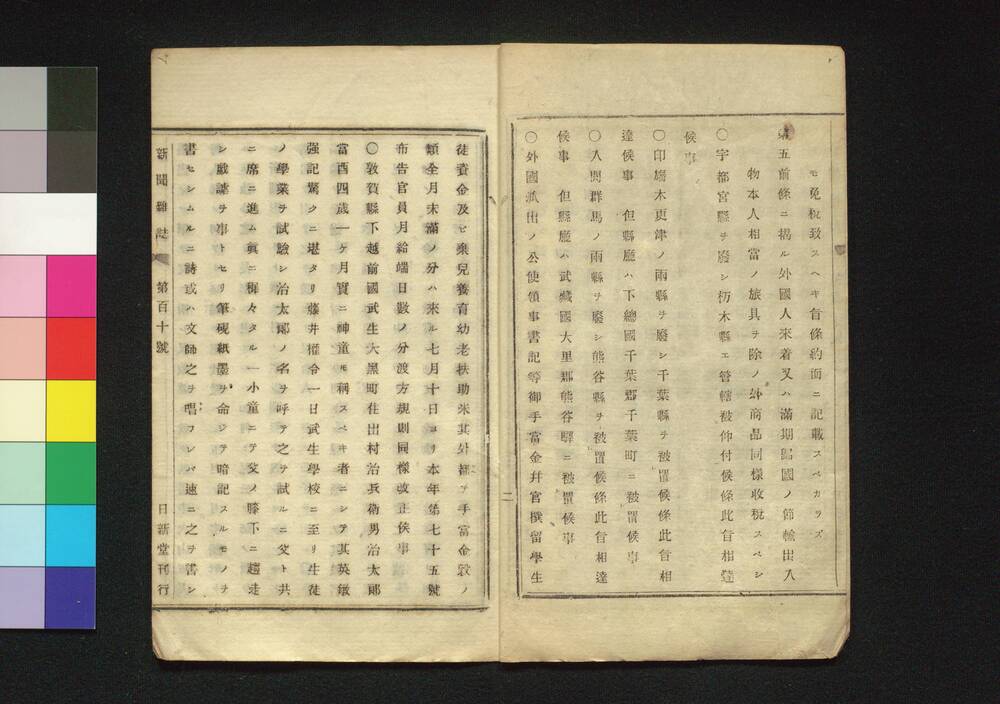 モ免税致スヘキ旨條約面ニ記載スベカラズ
第五前條ニ揭ル外國人来着又ハ滿期歸國ノ節輸出入
物本人相當ノ旅具ヲ除ノ外商品同樣收税スベシ
〇宇都宮縣ヲ廢シ栃木縣エ管轄被仰付候條此旨相達
候事
〇印旛木更津ノ兩縣ヲ廢シ千葉縣ヲ被置候條此旨相
達候事 但縣廳ハ下總國千葉郡千葉町ニ被置候事
〇入間群馬ノ兩縣ヲ廢シ熊谷縣ヲ被置候條此旨相達
候事 但縣廳ハ武藏國大里郡熊谷驛ニ被置候事
〇外國派出ノ公使領事書記等御手當金幷官撰留學生
二
徒費金及ヒ棄兒養育幼老扶助米其外總テ手當金穀ノ
類全月未滿ノ分ハ來ル七月十日ヨリ本年第七十五號
布告官員月給端日數ノ分渡方規則同樣改正候事
〇敦賀縣下越前國武生大黑町住出村治兵衛男治太郎
當酉四歳一ケ月實ニ神童モ稱スベキ者ニシテ其英敏
強記驚クニ堪タリ藤井權令一日武生學校ニ至リ生徒
ノ學業ヲ試驗シ治太郎ノ名ヲ呼テ之ヲ試ルニ父ト共
ニ席ニ進ム眞ニ稱々タル一小童ニテ父ノ膝下ニ趨走
シ戲謔ヲ事トセリ筆硯紙墨ヲ命ジテ暗記スルモノヲ
書セシムルニ詩或ハ文師之ヲ唱フレバ速ニ之ヲ書シ
新聞雜誌 第百十號 日新堂刊行